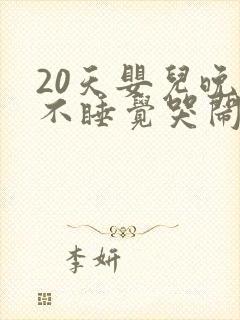 20天嬰兒晚
不睡覺哭鬧
李妍